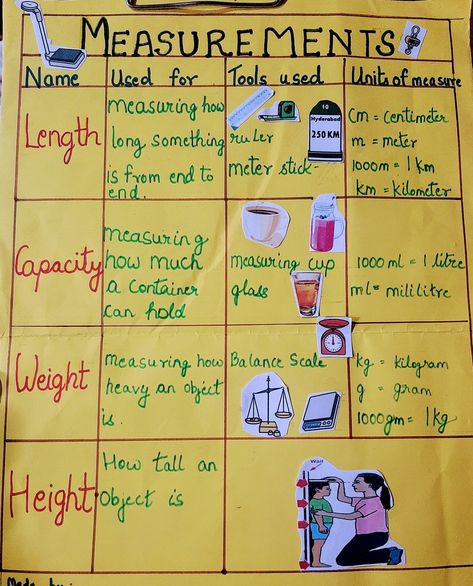 MEASUREMENTS
Name
Used for
Tools used
Units of measure
Length
measuring how
long something
is from end to
end.
ruler
meter stick-
10
Hyderabad
250 KM
cm = centimeter
m = meter
1000m = 1 km
km = kilometer
Capacity
measuring
how much
a container
can hold
measuring cup
glass
1000 ml = 1 litre
ml = mililitre
Weight
measuring how
heavy an object
is.
Balance Scale
kg = kilogram
g = gram
1000gm = 1kg
Height
How tall an
object is
Wall
Made by: